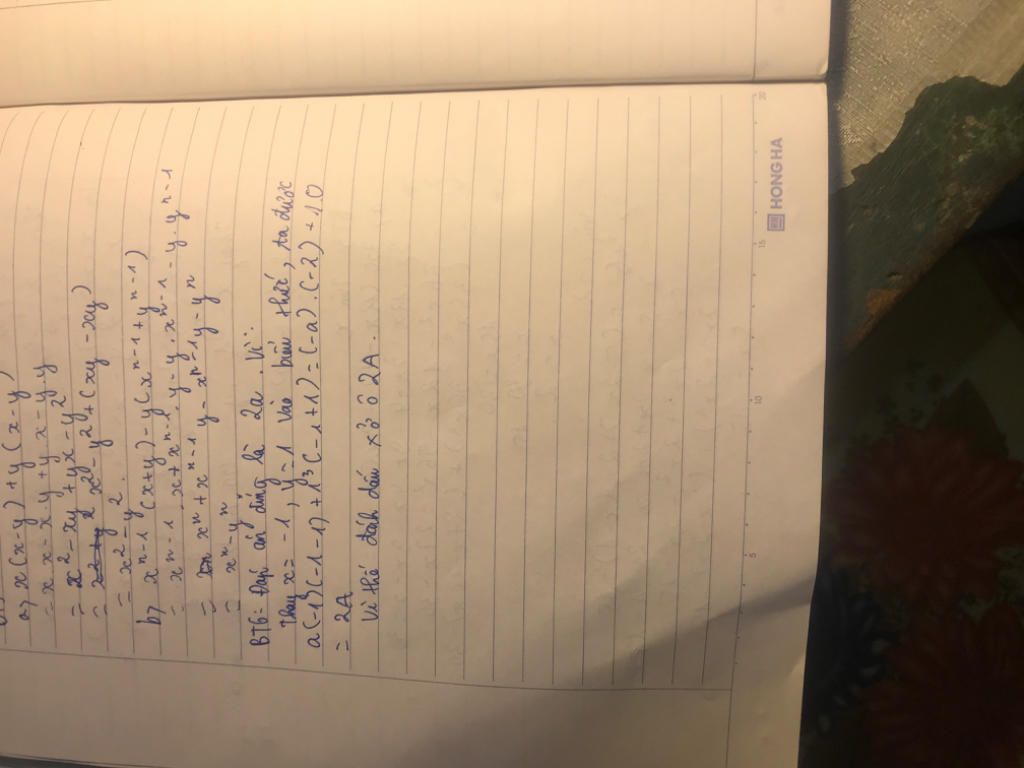 a) x(x-y)+y(x-y)
= x.x-x.y+y.x-y.y
= x²-xy+yx-y²
= x²-y²+(xy-xy)
= x²-y².
b) xⁿ⁻¹(x+y)-y(xⁿ⁻¹+yⁿ⁻¹)
= xⁿ⁻¹.x+xⁿ⁻¹.y-y.xⁿ⁻¹-y.yⁿ⁻¹
= xⁿ+xⁿ⁻¹y-xⁿ⁻¹y-yⁿ
= xⁿ-yⁿ
BT6: Đáp án đúng là 2a. Vì:
Thay x=-1, y=1 vào biểu thức, ta được
a(-1)(-1-1)+1³(-1+1)=(-a).(-2)+1.0
= 2A
Vì thế đánh dấu x ô 2A.
5
10
15
20
HONG HA